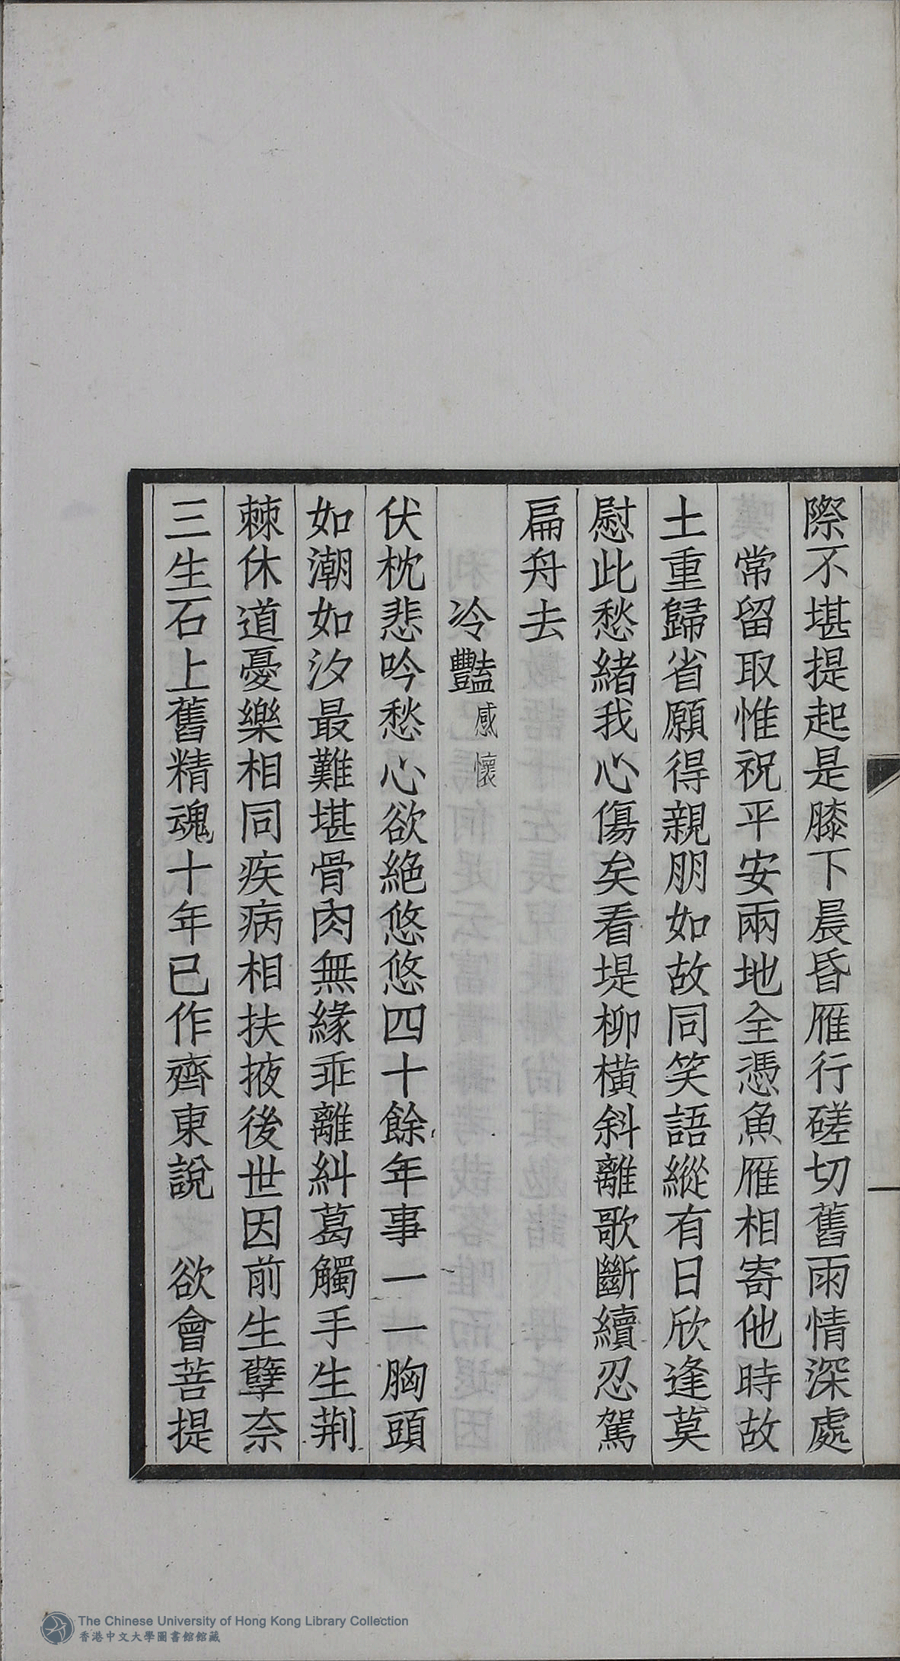 際不堪提起是膝下晨昏雁行磋切舊雨情深處
常留取惟祝平安兩地全憑魚雁相寄他時故
土重歸省願得親朋如故同笑語縱有日欣逢莫
慰此愁緒我心傷矣看堤柳橫斜離歌斷續忍駕
扁舟去
冷豔感懷
伏枕悲吟愁心欲絕悠悠四十餘年事一一胸頭
如潮如汐最難堪骨肉無緣乖離糾葛觸手生荆
棘休道憂樂相同疾病相扶掖後世因前生孽奈
三生石上舊精魂十年已作齊東說　欲會菩提
The Chinese University of Hong Kong Library Collection
香港中文大學圖書館館藏